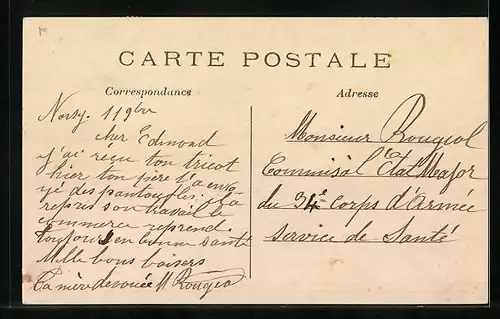 CARTE POSTALE
Correspondance
Adresse
11 9bre
cher Edmond
j'ai reçu ton tricot
hier ton père t'a envo
yé des pantoufles. il a
repris son travail le
commerce reprend.
toujours en bonne santé
Mille bons baisers
ta mère dévouée M Rougiol
Monsieur Rougiol
Commis à l'Etat Major
du 34e Corps d'Armée
Service de Santé